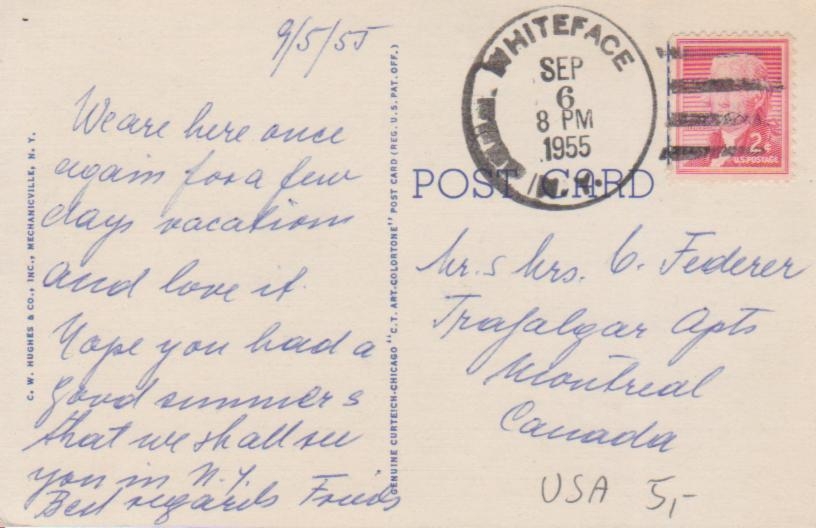 9/5/55
We are here once
again for a few
days vacations
and love it.
Hope you had a
good summer &
that we shall see
you in N.Y.
Best regards
C. W. HUGHES & CO., INC., MECHANICVILLE, N. Y.
GENUINE CURTEICH-CHICAGO "C. T. ART-COLORTONE" POST CARD (REG. U. S. PAT. OFF.)
WHITEFACE
SEP
6
8 PM
1955
N.Y.
2¢
U.S. POSTAGE
POST CARD
Mr. & Mrs. C. Federer
Trafalgar Apts
Montreal
Canada
USA 5,-